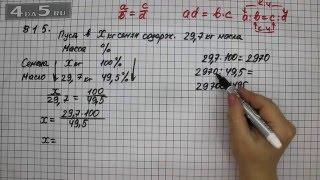 4ДЗ5.РУ
a/b = c/d
ad = b·c
a:b = c:d
815. Пусть в x кг семян содерж. 29,7 кг масла
Масса %
Семена x кг 100%
Масло 29,7 кг 49,5%
x/29,7 = 100/49,5
x = 29,7·100/49,5
x =
29,7·100=2970
2970:49,5=
29700:495